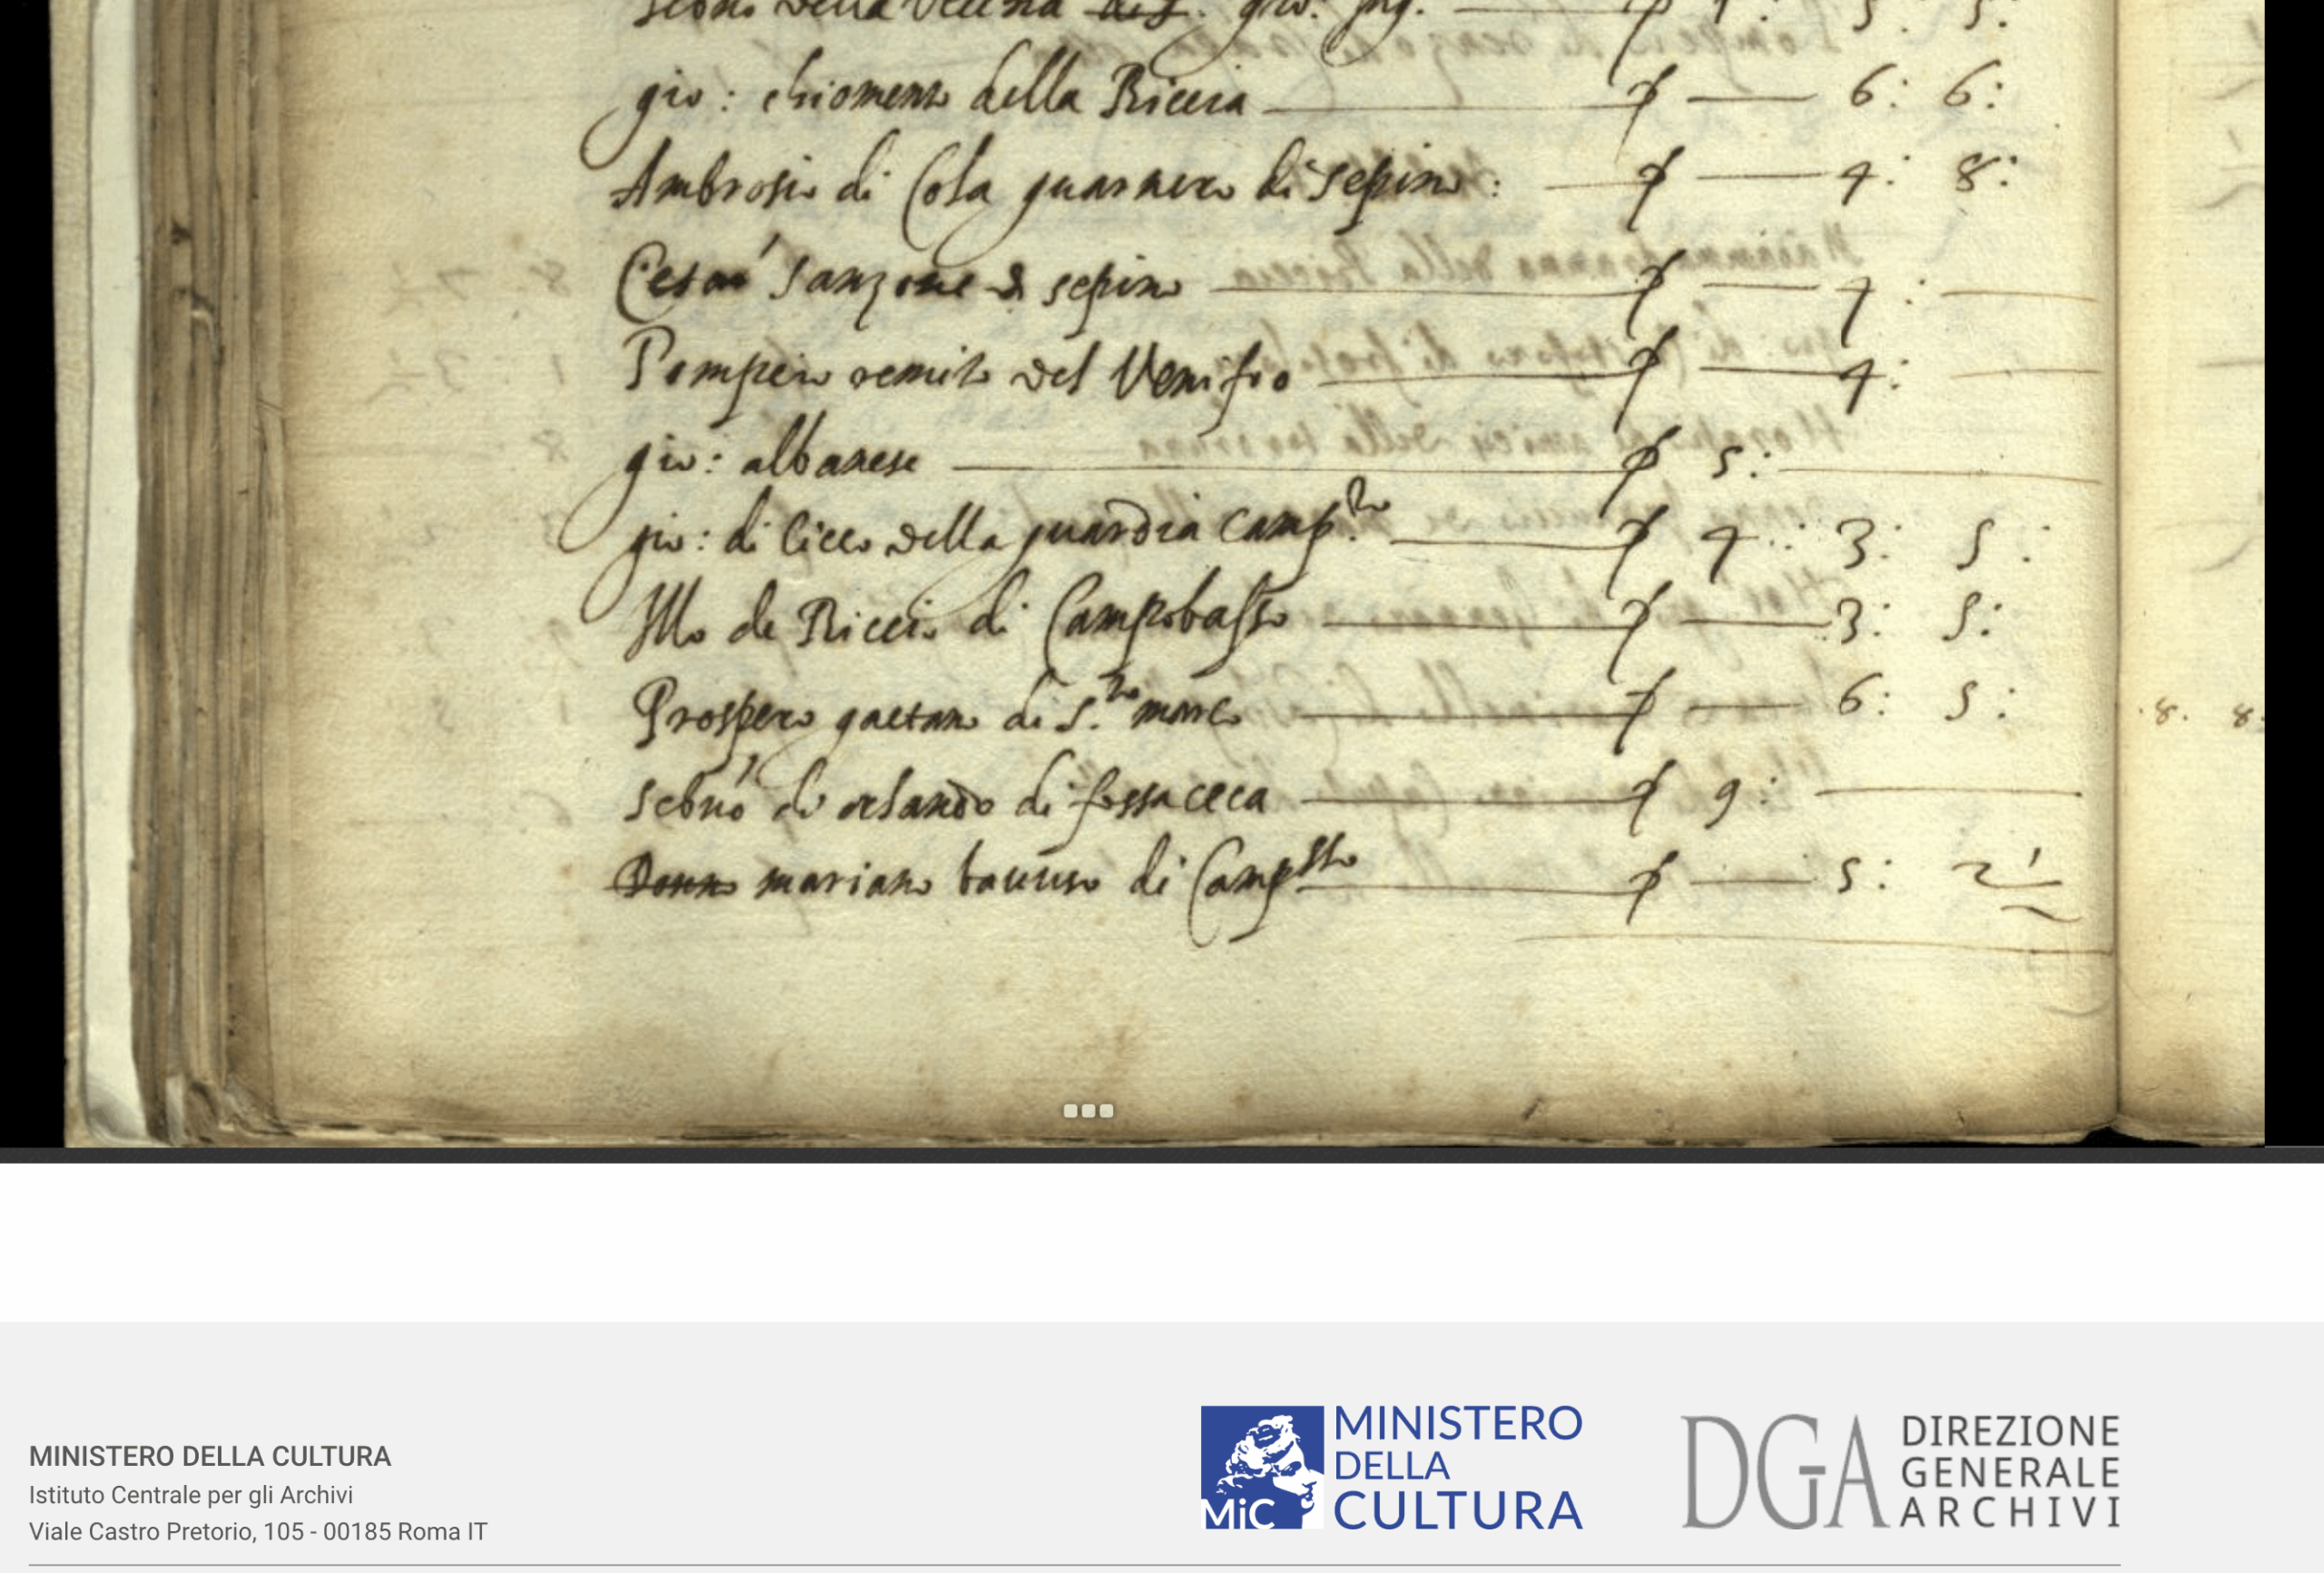 gio: chiomento della Riccia — 6: 6:
Ambrosio di Cola guarnero di sepino: — 4: 8:
Cesar' Sanzone di sepino — 4: —
Pompeio remito del Venafro — 4: —
gio: albanese — 5: —
gio: di Cicco della guardia Camp.ra — 4: 3: 5:
Illo de Riccio di Campobasso — 3: 5:
Prospero gaetano di S.to marco — 6: 5:
Sebno' di orlando di fossaceca — 9: —
mariano di Campsso — 5: 2 1
.8. 8.
MINISTERO DELLA CULTURA
Istituto Centrale per gli Archivi
Viale Castro Pretorio, 105 - 00185 Roma IT
MiC
MINISTERO
DELLA
CULTURA
DGA
DIREZIONE
GENERALE
ARCHIVI